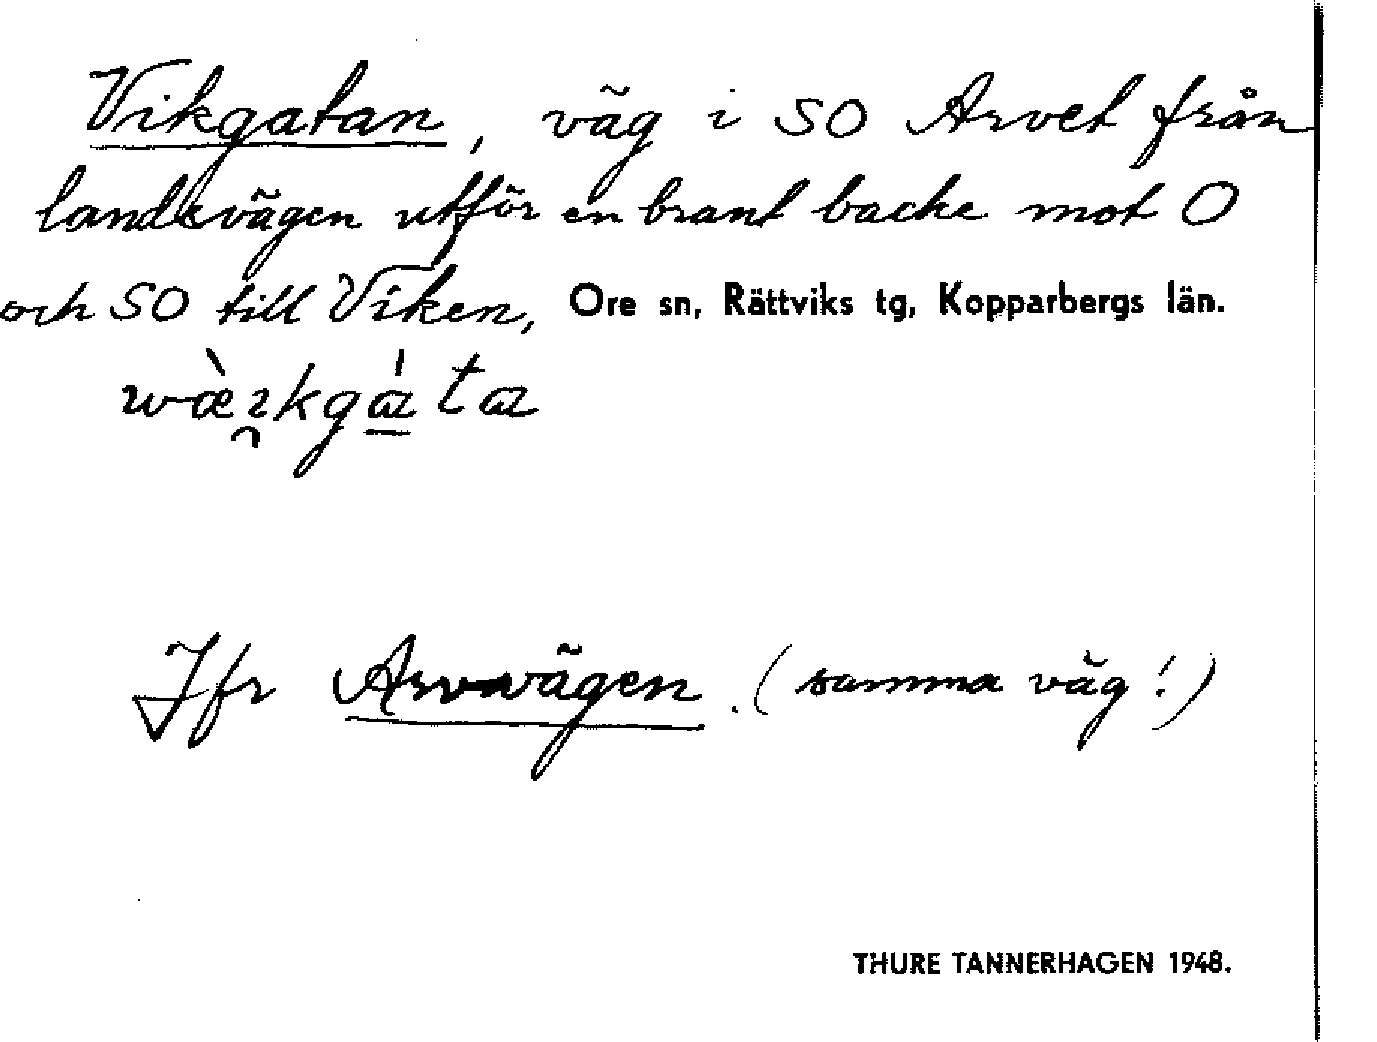 Vikgatan, väg i SO Arvet från
landsvägen utför en brant backe mot O
och SO till Viken, Ore sn, Rättviks tg, Kopparbergs län.
wæ̀ı̯kgáta
Jfr Arvvägen. (samma väg!)
THURE TANNERHAGEN 1948.